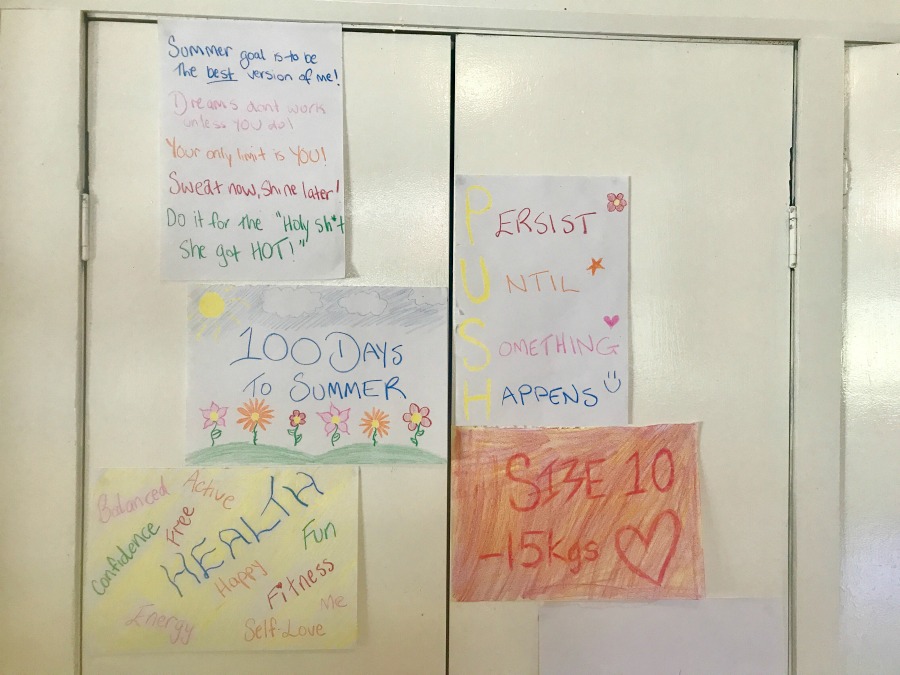 Summer goal is to be
the best version of me!
Dreams dont work
unless YOU do!
Your only limit is YOU!
Sweat now, shine later!
Do it for the "Holy sh*t
She got HOT!"
100 DAYS
TO SUMMER
Balanced
Active
Confidence
Free
HEALTH
Fun
Happy
Fitness
Me
Energy
Self-Love
PERSIST
UNTIL
SOMETHING
HAPPENS
SIZE 10
-15kgs